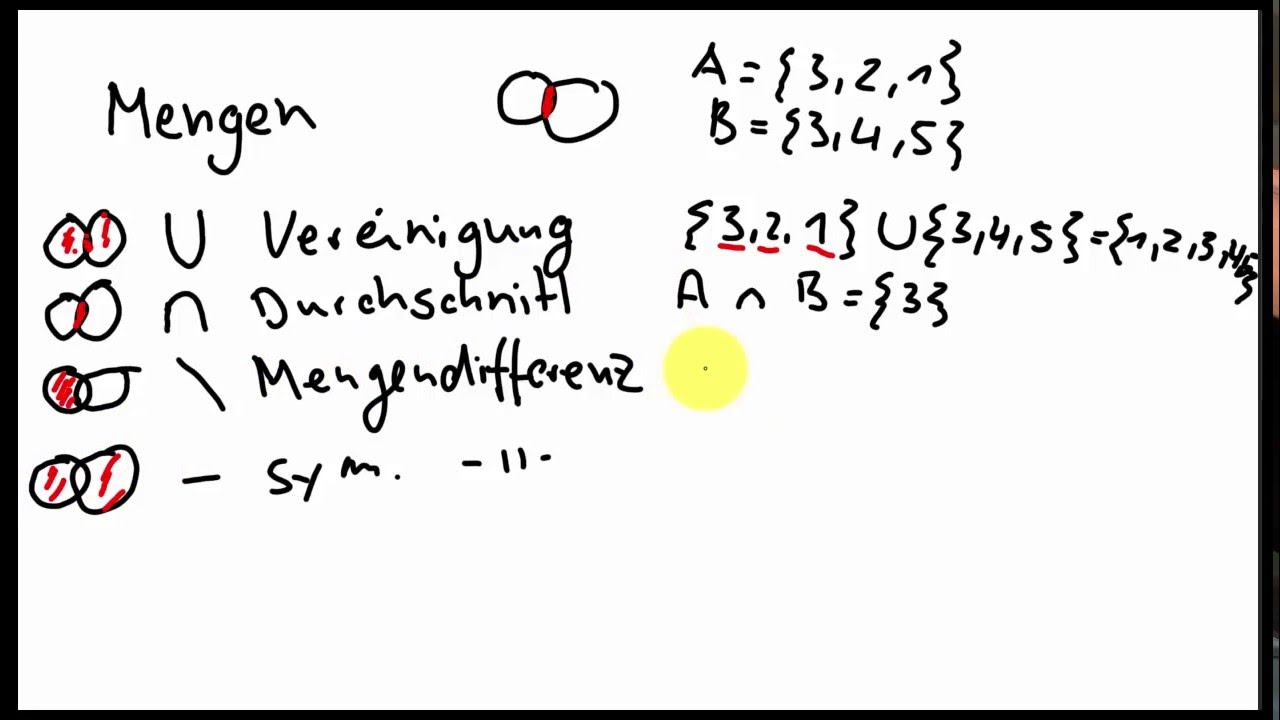 Mengen
A = {3, 2, 1}
B = {3, 4, 5}
∪ Vereinigung {3, 2, 1} ∪ {3, 4, 5} = {1, 2, 3, 4, 5}
∩ Durchschnitt A ∩ B = {3}
\ Mengendifferenz
− Sym. -11-